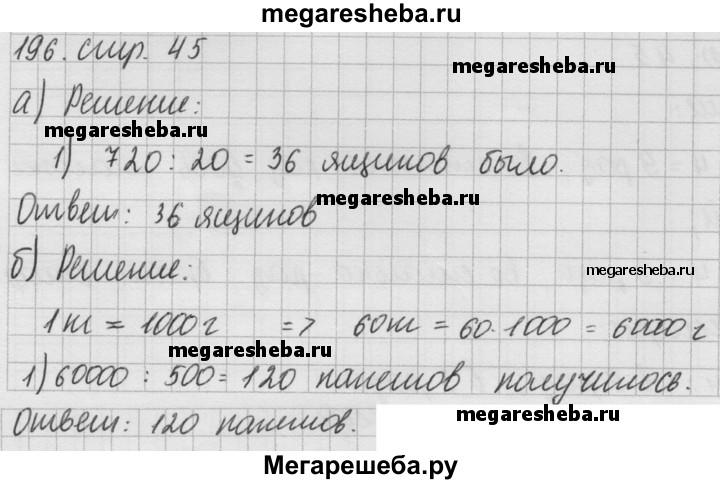 megaresheba.ru
196. стр. 45
megaresheba.ru
а) Решение:
megaresheba.ru
1) 720 : 20 = 36 ящиков было.
megaresheba.ru
Ответ: 36 ящиков
б) Решение:
megaresheba.ru
1т = 1000г => 60т = 60·1000 = 60000г
megaresheba.ru
1) 60000 : 500 = 120 пакетов получилось.
megaresheba.ru
Ответ: 120 пакетов.
Мегарешеба.ру